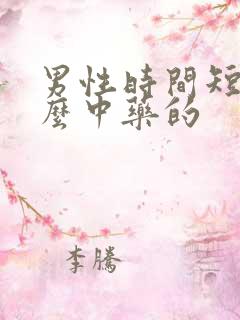 男性時間短
麼中藥的
李騰